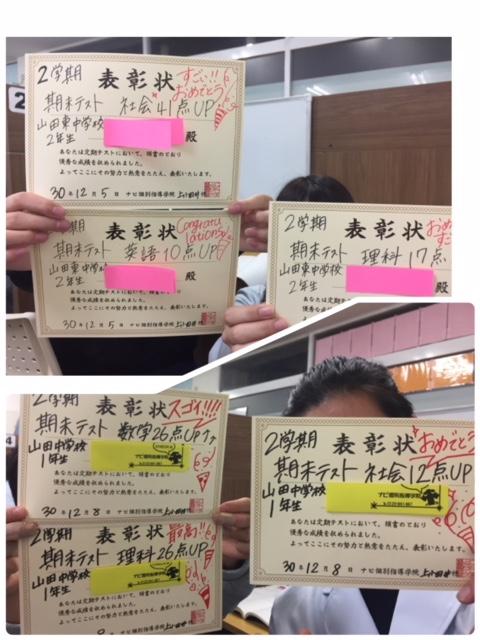 2学期
表彰状
すごい!!
おめでとう
期末テスト 社会41点UP
山田東中学校
2年生
殿
あなたは定期テストにおいて、頭書のとおり
優秀な成績を収められました。
よってここにその努力と熱意をたたえ、表彰いたします。
30年12月5日 ナビ個別指導学院 上小田井校
表彰状
Congratulations
期末テスト 英語10点UP
山田東中学校
2年生
殿
あなたは定期テストにおいて、頭書のとおり
優秀な成績を収められました。
よってここにその努力と熱意をたたえ、表彰いたします。
30年12月5日 ナビ個別指導学院 上小田井校
2学期
表彰状
期末テスト 理科17点
山田東中学校
2年生
殿
あなたは定期テストにおいて、頭書のとおり
優秀な成績を収められました。
よってここにその努力と熱意をたたえ、表彰いたします。
2学期
表彰状
スゴイ!!!!
期末テスト 数学26点UP
山田中学校
1年生
あなたは定期テストにおいて、頭書のとおり
優秀な成績を収められました。
よってここにその努力と熱意をたたえ、表彰いたします。
30年12月8日 ナビ個別指導学院
2学期
表彰状
最高!!
期末テスト 理科26点UP
山田中学校
1年生
あなたは定期テストにおいて、頭書のとおり
優秀な成績を収められました。
よってここにその努力と熱意をたたえ、表彰いたします。
ナビ個別指導学院
2学期
表彰状
おめでとう
期末テスト 社会12点UP
山田中学校
1年生
ナビ個別指導学院
あなたは定期テストにおいて、頭書のとおり
優秀な成績を収められました。
よってここにその努力と熱意をたたえ、表彰いたします。
30年12月8日 ナビ個別指導学院 上小田井校